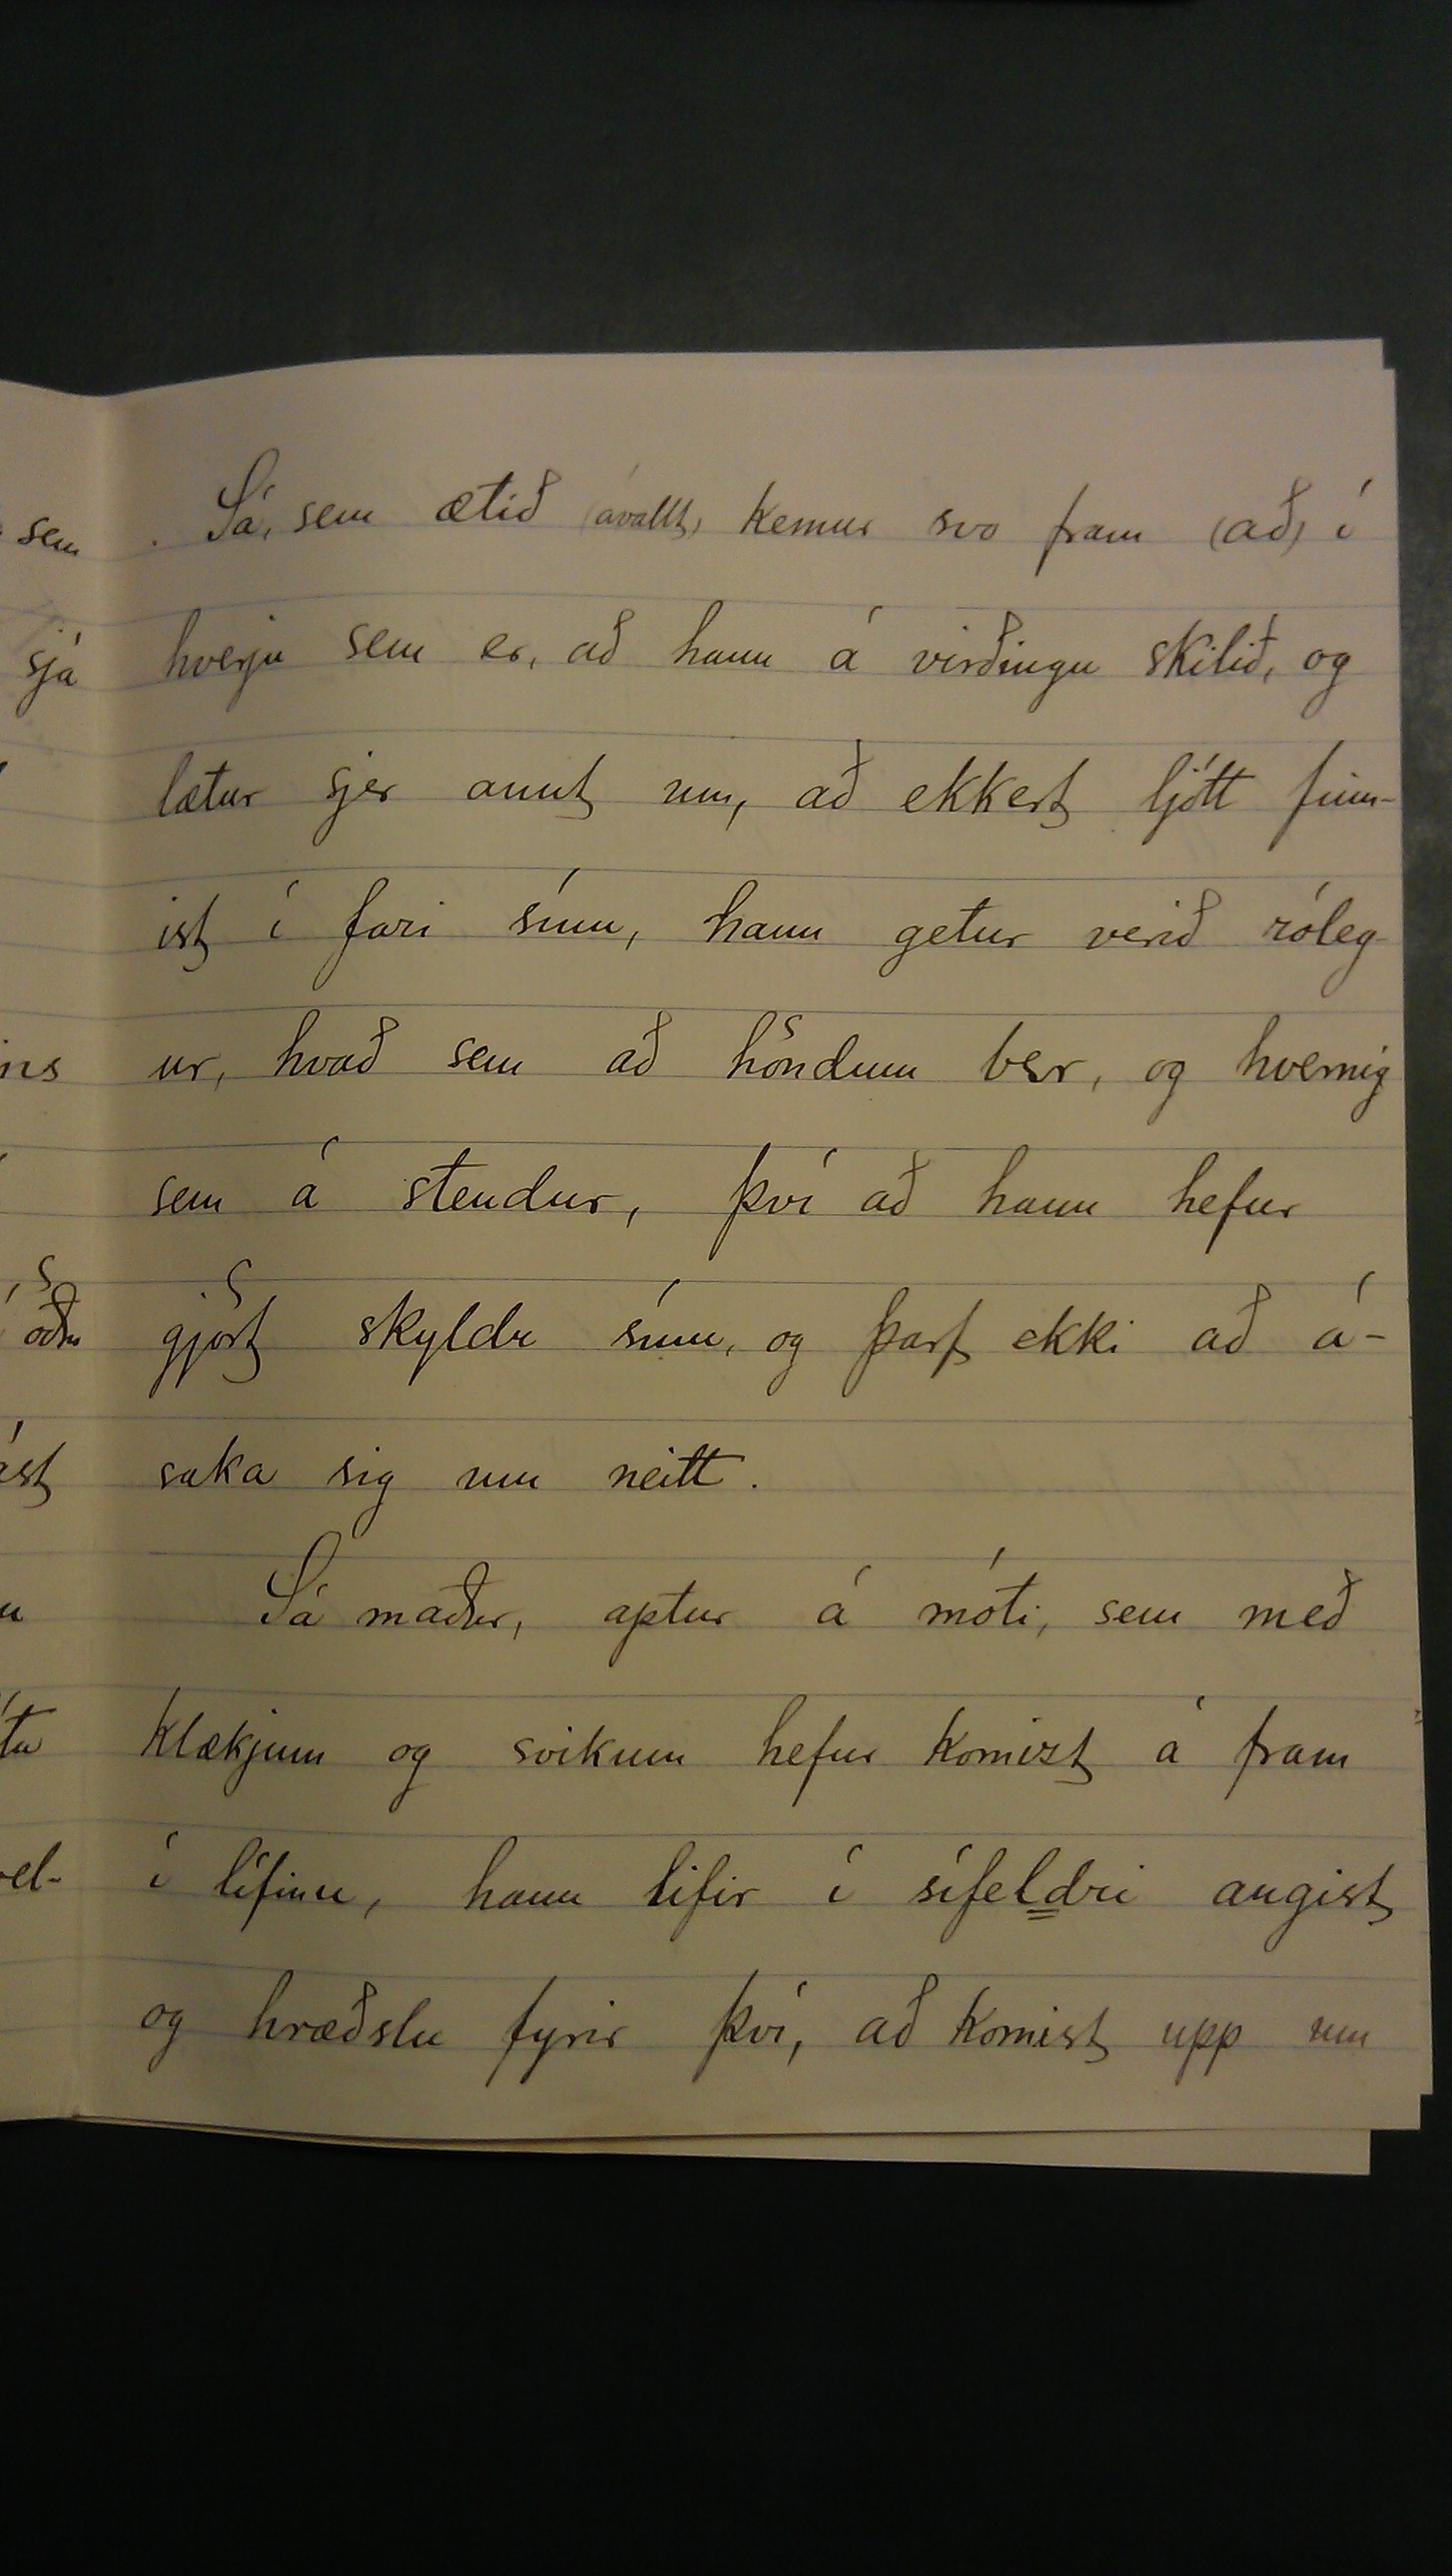 Sá, sem ætið (ávallt) kemur svo fram (að) í
hverju sem er, að hann á virðingu skilið, og
lætur sjer annt um, að ekkert ljótt finn-
ist í fari sínu, hann getur verið róleg-
ur, hvað sem að höndum ber, og hvernig
sem á stendur, því að hann hefur
gjört skyldu sínu, og þarf ekki að á-
saka sig um neitt.
Sá maður, aptur á móti, sem með
klækjum og svikum hefur komizt á fram
í lífinu, hann lifir í sífeldri angist
og hræðslu fyrir því, að komist upp um
sem
sjá
ins
öðru
ást
el-